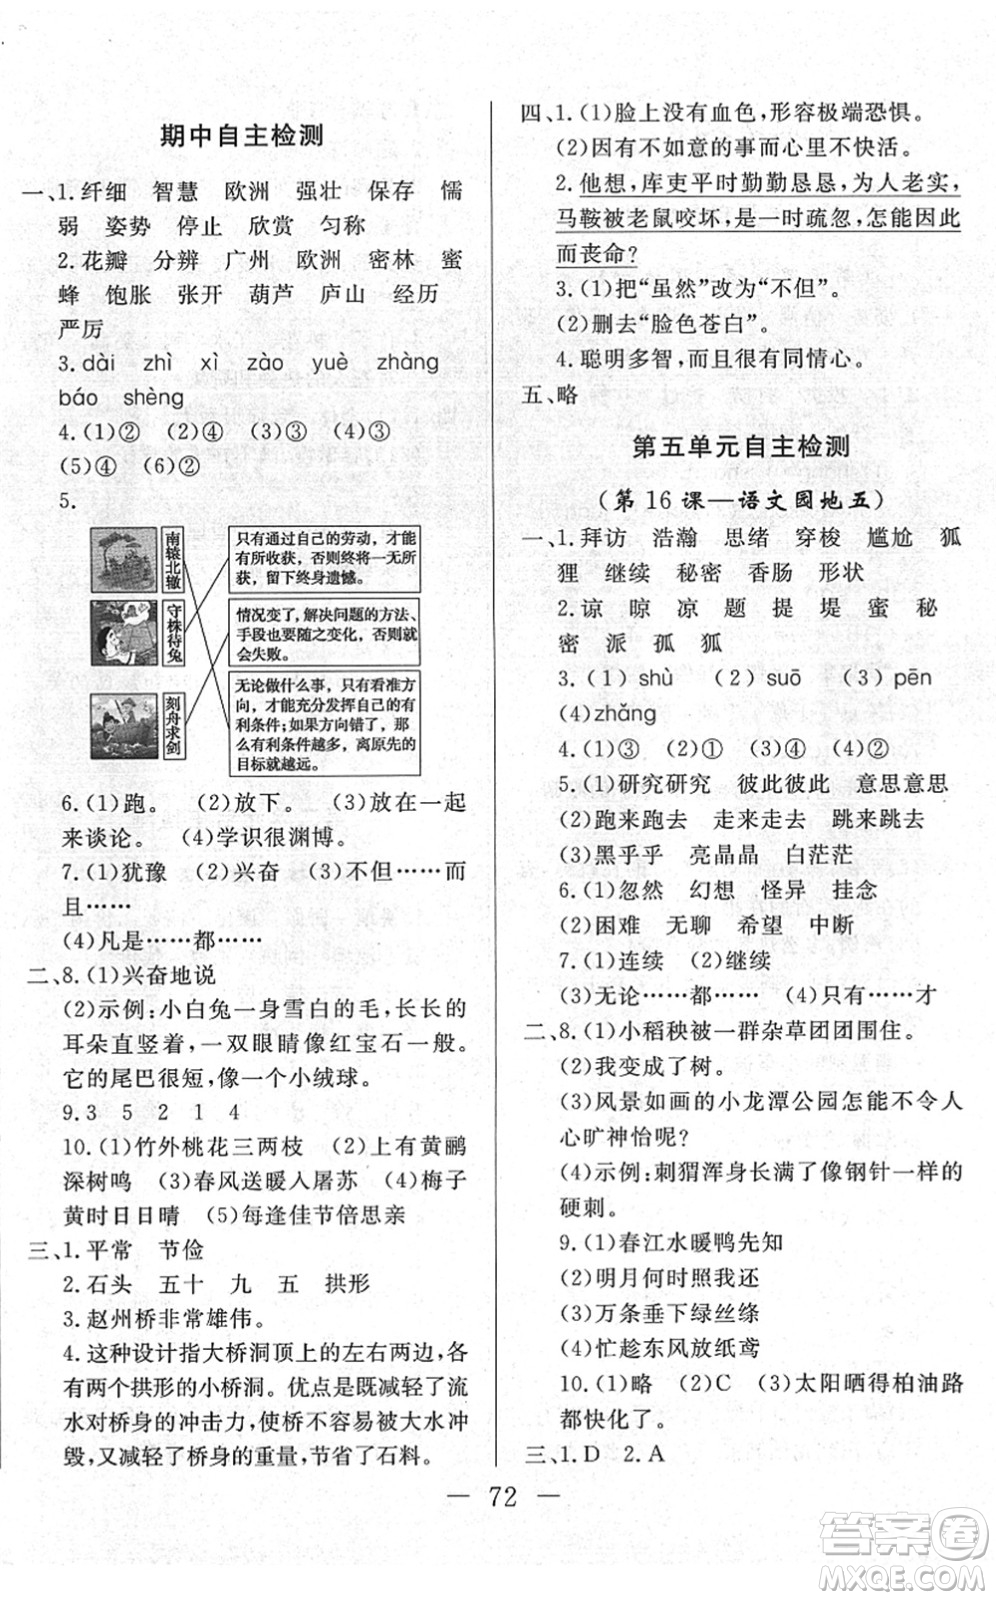 期中自主检测
一、1.纤细 智慧 欧洲 强壮 保存 懦
弱 姿势 停止 欣赏 匀称
2.花瓣 分辨 广州 欧洲 密林 蜜
蜂 饱胀 张开 葫芦 庐山 经历
严厉
3.dài zhì xì zào yuè zhàng
báo shèng
4.(1)② (2)④ (3)③ (4)③
(5)④ (6)②
5.
南辕北辙
守株待兔
刻舟求剑
只有通过自己的劳动，才能
有所收获，否则终将一无所
获，留下终身遗憾。
情况变了，解决问题的方法、
手段也要随之变化，否则就
会失败。
无论做什么事，只有看准方
向，才能充分发挥自己的有
利条件；如果方向错了，那
么有利条件越多，离原先的
目标就越远。
6.(1)跑。 (2)放下。 (3)放在一起
来谈论。 (4)学识很渊博。
7.(1)犹豫 (2)兴奋 (3)不但……而
且……
(4)凡是……都……
二、8.(1)兴奋地说
(2)示例：小白兔一身雪白的毛，长长的
耳朵直竖着，一双眼睛像红宝石一般。
它的尾巴很短，像一个小绒球。
9.3 5 2 1 4
10.(1)竹外桃花三两枝 (2)上有黄鹂
深树鸣 (3)春风送暖入屠苏 (4)梅子
黄时日日晴 (5)每逢佳节倍思亲
三、1.平常 节俭
2.石头 五十 九 五 拱形
3.赵州桥非常雄伟。
4.这种设计指大桥洞顶上的左右两边，各
有两个拱形的小桥洞。优点是既减轻了流
水对桥身的冲击力，使桥不容易被大水冲
毁，又减轻了桥身的重量，节省了石料。
四、1.(1)脸上没有血色，形容极端恐惧。
(2)因有不如意的事而心里不快活。
2.他想，库吏平时勤勤恳恳，为人老实，
马鞍被老鼠咬坏，是一时疏忽，怎能因此
而丧命？
3.(1)把“虽然”改为“不但”。
(2)删去“脸色苍白”。
4.聪明多智，而且很有同情心。
五、略
第五单元自主检测
(第16课—语文园地五)
一、1.拜访 浩瀚 思绪 穿梭 尴尬 狐
狸 继续 秘密 香肠 形状
2.谅 晾 凉 题 提 堤 蜜 秘
密 派 孤 狐
3.(1)shù (2)suō (3)pēn
(4)zhǎng
4.(1)③ (2)① (3)④ (4)②
5.(1)研究研究 彼此彼此 意思意思
(2)跑来跑去 走来走去 跳来跳去
(3)黑乎乎 亮晶晶 白茫茫
6.(1)忽然 幻想 怪异 挂念
(2)困难 无聊 希望 中断
7.(1)连续 (2)继续
(3)无论……都…… (4)只有……才
二、8.(1)小稻秧被一群杂草团团围住。
(2)我变成了树。
(3)风景如画的小龙潭公园怎能不令人
心旷神怡呢？
(4)示例：刺猬浑身长满了像钢针一样的
硬刺。
9.(1)春江水暖鸭先知
(2)明月何时照我还
(3)万条垂下绿丝绦
(4)忙趁东风放纸鸢
10.(1)略 (2)C (3)太阳晒得柏油路
都快化了。
三、1.D 2.A
— 72 —
答案圈
MXQE.COM